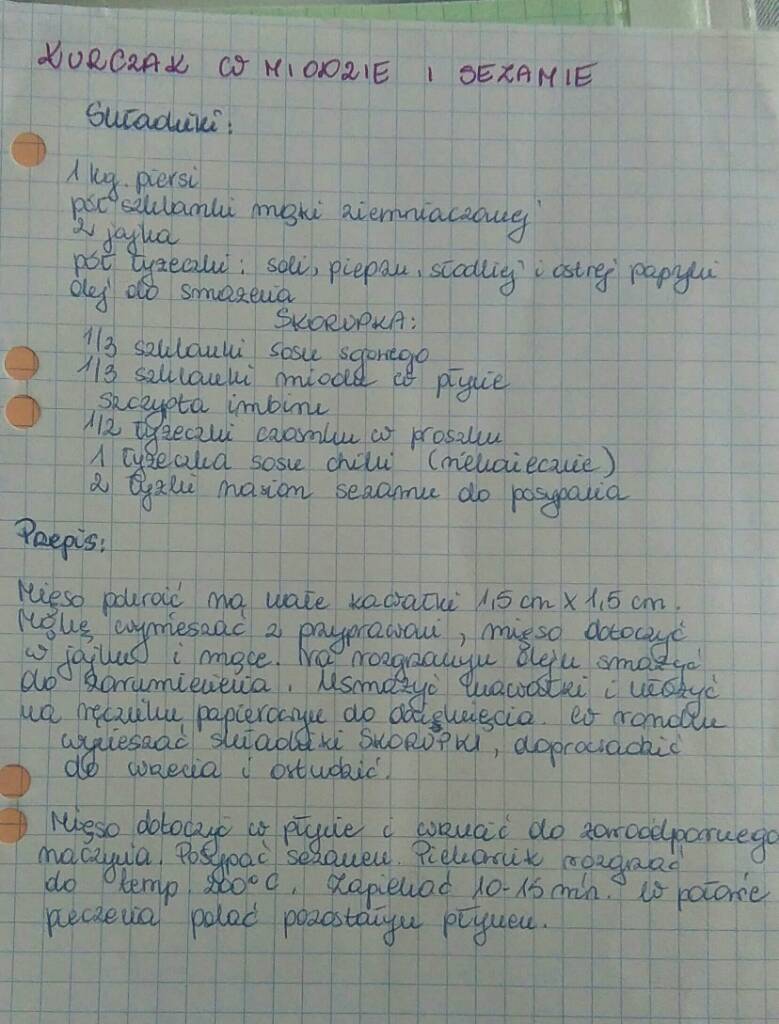 KURCZAK W MIODZIE I SEZAMIE
Składniki:
1 kg. piersi
pół szklanki mąki ziemniaczanej
2 jajka
pół łyżeczki: soli, pieprzu, słodkiej i ostrej papryki
olej do smażenia
SKORUPKA:
1/3 szklanki sosu sojowego
1/3 szklanki miodu w płynie
szczypta imbiru
1/2 łyżeczki czosnku w proszku
1 łyżeczka sosu chilli (niekoniecznie)
2 łyżki nasion sezamu do posypania
Przepis:
Mięso pokroić na małe kawałki 1,5 cm x 1,5 cm.
Mąkę wymieszać z przyprawami, mięso obtoczyć
w jajku i mące. Na rozgrzanym oleju smażyć
do zarumienienia. Usmażyć kawałki i ułożyć
na ręczniku papierowym do odciśnięcia. W rondlu
wymieszać składniki SKORUPKI, doprowadzić
do wrzenia i ostudzić.
Mięso obtoczyć w płynie i wrzucić do żaroodpornego
naczynia. Posypać sezamem. Piekarnik rozgrzać
do temp. 200°C. Zapiekać 10-15 min. W połowie
pieczenia polać pozostałym płynem.